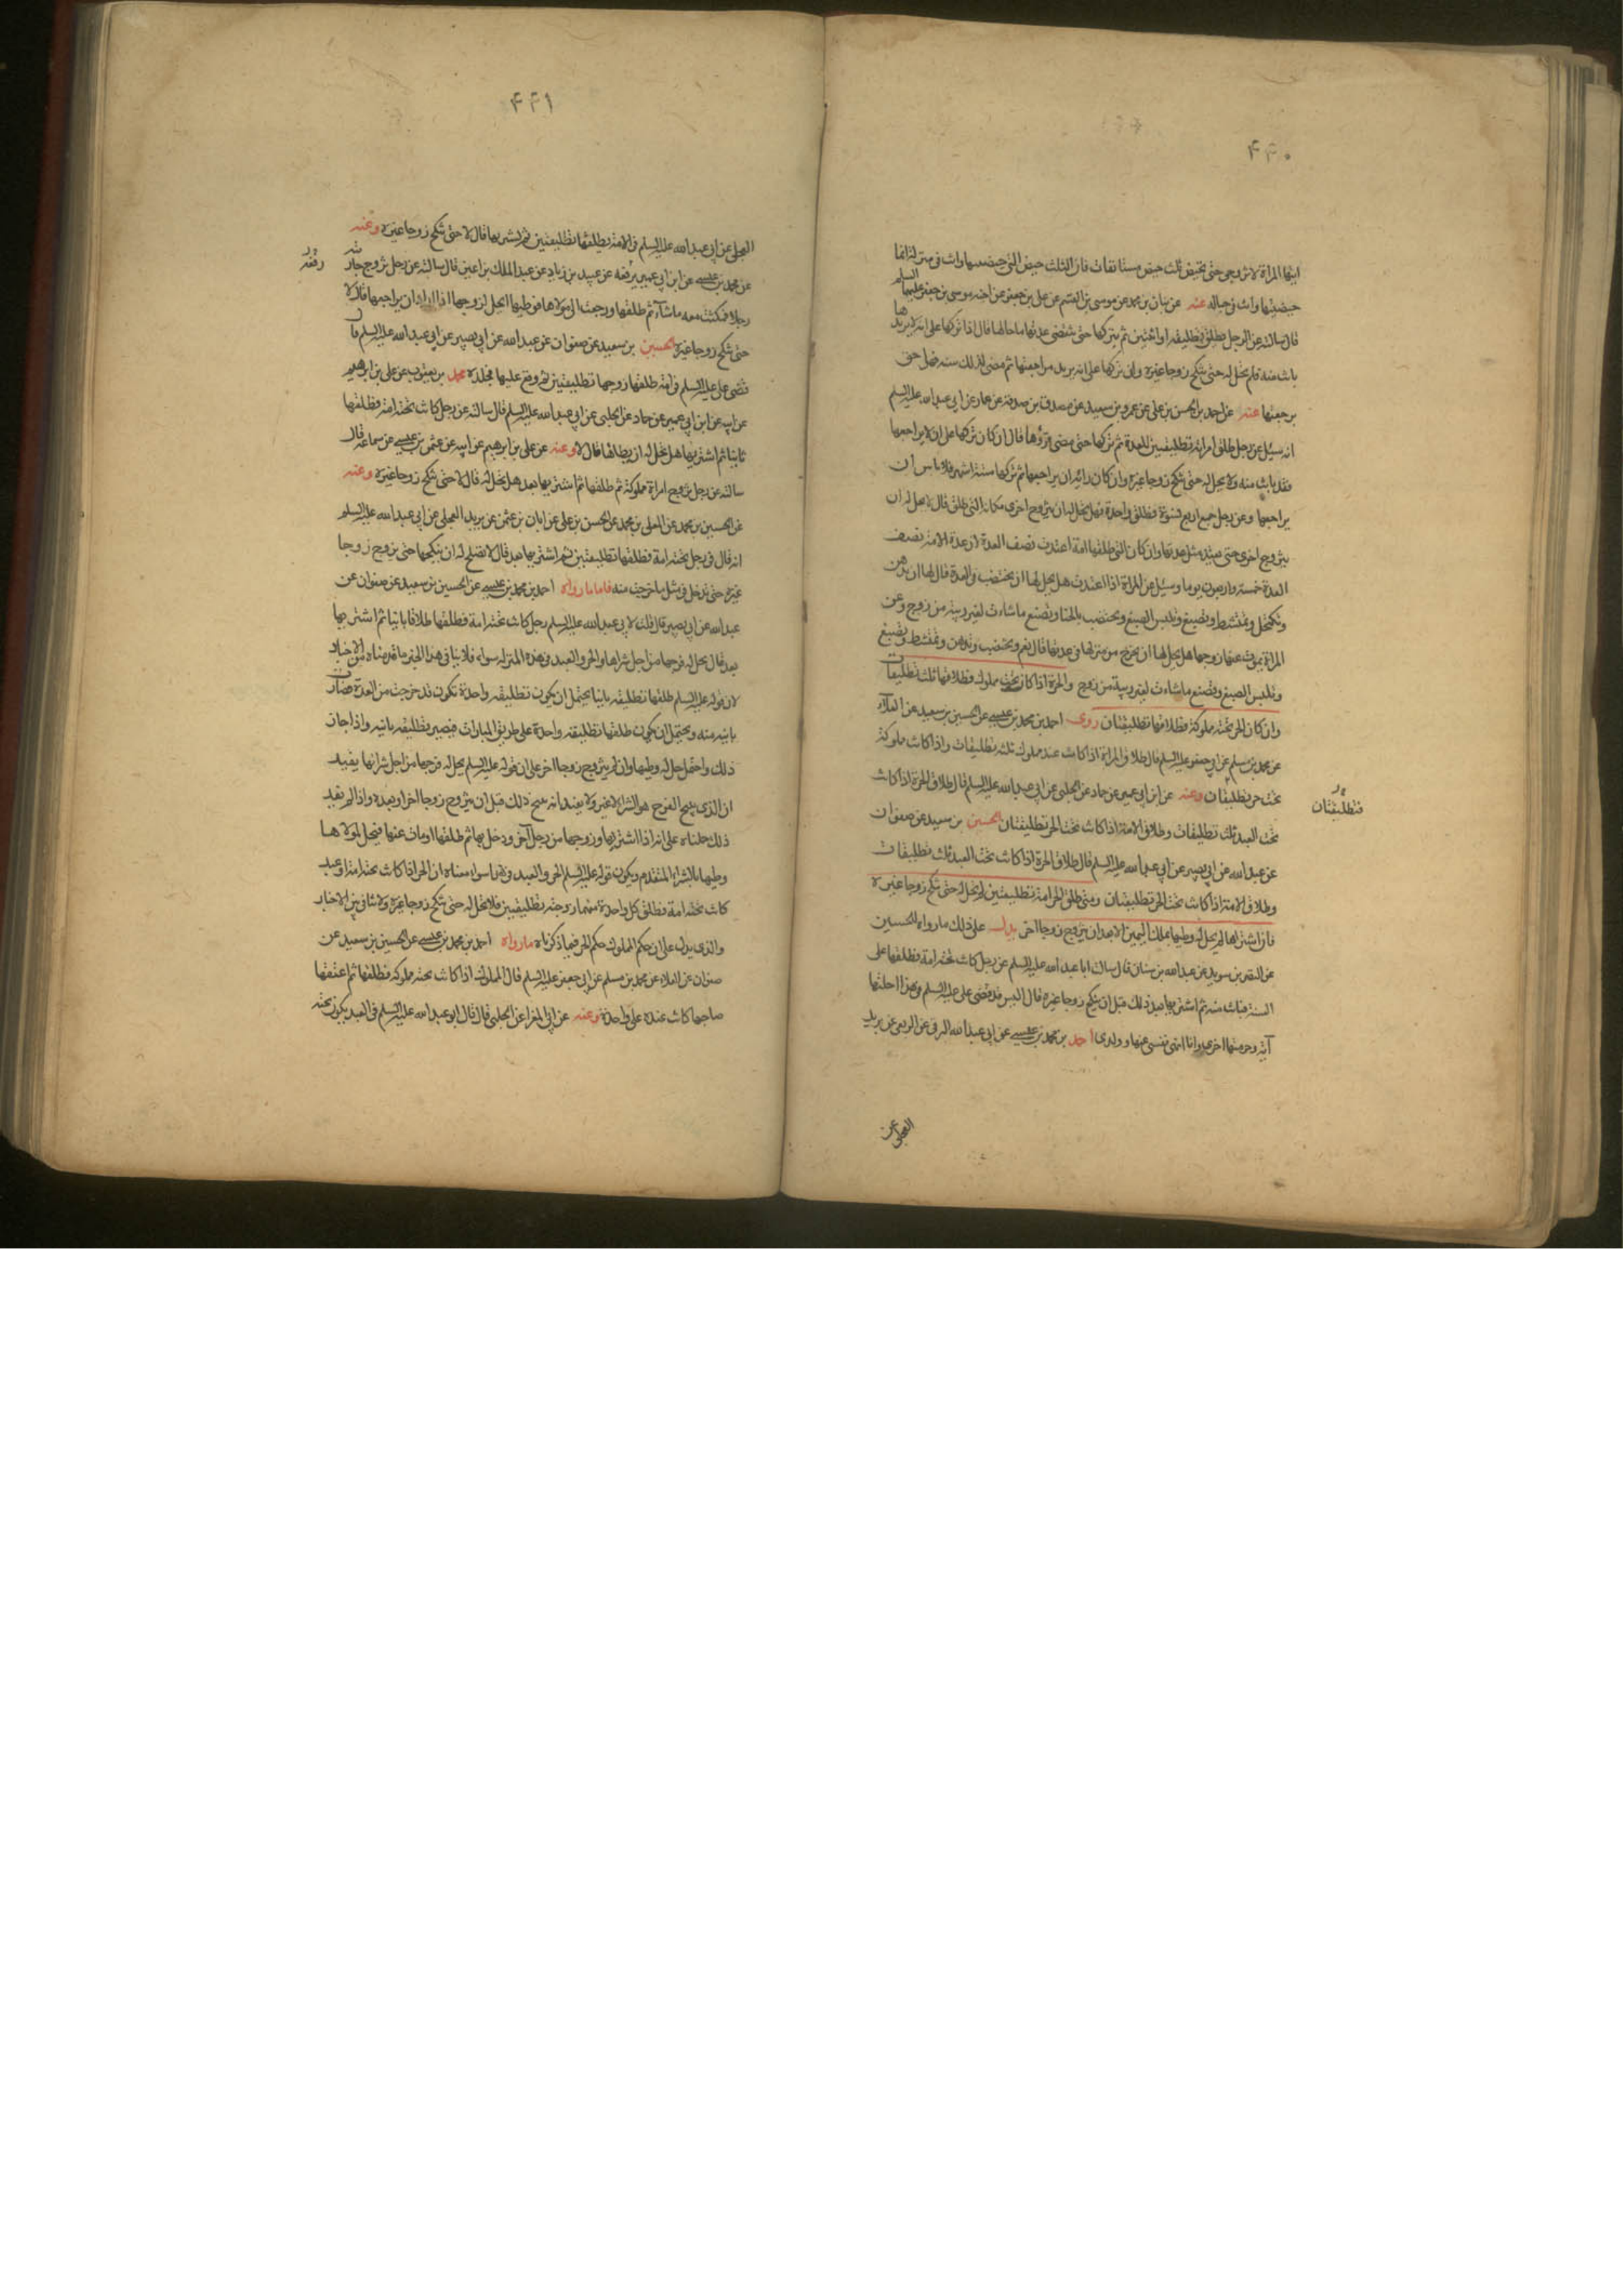 ۴۴۰
ايتها المراة لا تزوجى حتى تحيض ثلث حيض مستانفات فان الثلث حيض التى حيضتيها وانت فى منزله انما
حيضتيها وانت فى حباله عنه عن بنان بن محمد عن موسى بن القسم عن على بن جعفر عن اخيه موسى بن جعفر عليهما السلم
قال سالته عن الرجل يطلق تطليقة او اثنتين ثم يتركها حتى تنقضى عدتها ما حالها قال اذا تركها على انه لا يريدها
بانت منه فلم تحل له حتى تنكح زوجا غيره وان تركها على انه يريد مراجعتها ثم مضى لذلك سنة فهو احق
برجعتها عنه عن احمد بن الحسن بن على عن عمرو بن سعيد عن مصدق بن صدقة عن عمار عن ابى عبدالله عليه السلم
انه سئل عن رجل طلق امراته تطليقتين للعدة ثم تركها حتى مضى قرؤها قال ان كان تركها على ان لا يراجعها
فقد بانت منه ولا يحل له حتى تنكح زوجا غيره وان كان رائه ان يراجعها ثم تركها ستة اشهر فلا باس ان
يراجعها وعن رجل جمع اربع نسوة فطلق واحدة فهل يحل له ان يتزوج اخرى مكان التى طلق قال لا يحل له ان
يتزوج اخرى حتى يعتد مثل عدتها وان كان التى طلقها امة اعتدت نصف العدة لان عدة الامة نصف
العدة خمسة واربعون يوما وسئل عن المراة اذا اعتدت هل يحل لها ان تختضب فى العدة قال لها ان تدهن
وتكتحل وتمتشط وتصبغ وتلبس الصبغ وتختضب بالحنا وتصنع ما شاءت لغير ريبة من زوج وعن
المراة يموت عنها زوجها هل يحل لها ان تخرج من منزلها فى عدتها قال نعم وتختضب وتدهن وتمتشط وتصبغ
وتلبس الصبغ وتصنع ما شاءت لغير ريبة من زوج والحرة اذا كان تحت مملوك فطلاقها ثلث تطليقات
وان كان الحر تحته مملوكة فطلاقها تطليقتان روى احمد بن محمد بن عيسى عن الحسين بن سعيد عن العلاء
عن محمد بن مسلم عن ابى جعفر عليه السلم قال طلاق المراة اذا كانت عند مملوك ثلثه تطليقات واذا كانت مملوكة
تحت حر تطليقتان وعنه عن ابن ابى عمير عن حماد عن الحلبى عن ابى عبدالله عليه السلم قال طلاق الحرة اذا كانت
فتطليقتان
تحت العبد ثلث تطليقات وطلاق الامة اذا كانت تحت الحر تطليقتان الحسين بن سعيد عن صفوان
عن عبدالله عن ابى بصير عن ابى عبدالله عليه السلم قال طلاق الحرة اذا كانت تحت العبد ثلث تطليقات
وطلاق الامة اذا كانت تحت الحر تطليقتان ومتى طلق الحر امة تطليقتين لم يحل له حتى تنكح زوجا غيره
فان اشتراها لم يحل له وطيها بملك اليمين الا بعد ان يتزوج زوجا اخر يدل على ذلك ما رواه الحسين
عن النضر بن سويد عن عبدالله بن سنان قال سالت ابا عبدالله عليه السلم عن رجل كانت تحته امة فطلقها على
السنة فبانت منه ثم اشتريها بعد ذلك قبل ان ينكح زوجا غيره قال اليس قد قضى على عليه السلم فى هذا احلتها
آية وحرمتها اخرى وانا انهى نفسى عنها وولدى احمد بن محمد بن عيسى عن ابى عبدالله البرقى عن الربعى عن بريد
العجلى عن
۴۴۱
العجلى عن ابى عبدالله عليه السلم فى الامة يطلقها تطليقتين ثم يشتريها قال لا حتى تنكح زوجا غيره وعنه
عن محمد بن عيسى عن ابن ابى عمير يرفعه عن عبيد بن زياد عن عبد الملك بن اعين قال سالته عن رجل تزوج جاريته
رجلا فمكثت معه ما شاء ثم طلقها ورجعت الى مولاها فوطيها ايحل لزوجها اذا اراد ان يراجعها قال لا
حتى تنكح زوجا غيره الحسين بن سعيد عن صفوان عن عبدالله عن ابى بصير عن ابى عبدالله عليه السلم قال
قضى على عليه السلم فى امة طلقها زوجها تطليقتين ثم وقع عليها فجلده محمد بن يعقوب عن على بن ابراهيم
عن ابيه عن ابن ابى عمير عن حماد عن الحلبى عن ابى عبدالله عليه السلم قال سالته عن رجل كانت تحته امة فطلقها
ثانيا ثم اشتريها هل تحل له ان يطاها قال لا وعنه عن على بن ابراهيم عن ابيه عن عثمن بن عيسى عن سماعة قال
سالته عن رجل تزوج امراة مملوكة ثم طلقها ثم اشتريها بعد هل يحل له قال لا حتى تنكح زوجا غيره وعنه
عن الحسين بن محمد عن المعلى بن محمد عن الحسن بن على عن ابان بن عثمن عن بريد العجلى عن ابى عبدالله عليه السلم
انه قال فى رجل تحته امة فطلقها تطليقتين ثم اشتريها بعد قال لا تصلح له ان ينكحها حتى تزوج زوجا
غيره حتى تدخل فى مثل ما خرجت منه فاما ما رواه احمد بن محمد بن عيسى عن الحسين بن سعيد عن صفوان عن
عبدالله عن ابى بصير قال قلت لابى عبدالله عليه السلم رجل كانت تحته امة فطلقها طلاقا باينا ثم اشتريها
بعد قال يحل له فرجها من اجل شراها والحر والعبد فى هذه المنزلة سواء فلا ينافى هذا الخبر ما قدمناه من الاخبار
لان قوله عليه السلم طلقها تطليقة باينا يحتمل ان يكون تطليقة واحدة تكون قد خرجت من العدة فصارت
باينه منه ويحتمل ان يكون طلقها تطليقة واحدة على طريق المبارات فيصير تطليقة باينه واذا جاز
ذلك واحتمل حل له وطيها وان لم يتزوج زوجا اخر على ان قوله عليه السلم يحل له فرجها من اجل شرائها يفيد
ان الذى يبيح الفرج هو الشراء لا غير ولا يفيد انه يبيح ذلك قبل ان يتزوج زوجا اخر او بعده واذا لم يفيد
ذلك حملناه على انه اذا اشتريها وزوجها من رجل آخر ودخل بها ثم طلقها او مات عنها فيحل لمولاها
وطيها بالشراء المتقدم ويكون قوله عليه السلم الحر والعبد فى هذا سوا معناه ان الحر اذا كانت تحته امة او عبد
كانت تحته امة فطلق كل واحدة منهما زوجته تطليقتين فلا تحل له حتى تنكح زوجا غيره ولا تنافى بين الاخبار
والذى يدل على ان حكم المملوك حكم الحر فيما ذكرناه ما رواه احمد بن محمد بن عيسى عن الحسين بن سعيد عن
صفوان عن العلاء عن محمد بن مسلم عن ابى جعفر عليه السلم قال المملوك اذا كانت تحته مملوكة فطلقها ثم اعتقها
صاحبها كانت عنده على واحدة وعنه عن ابى المغرا عن الحلبى قال قال ابو عبدالله عليه السلم فى العبد يكون تحته